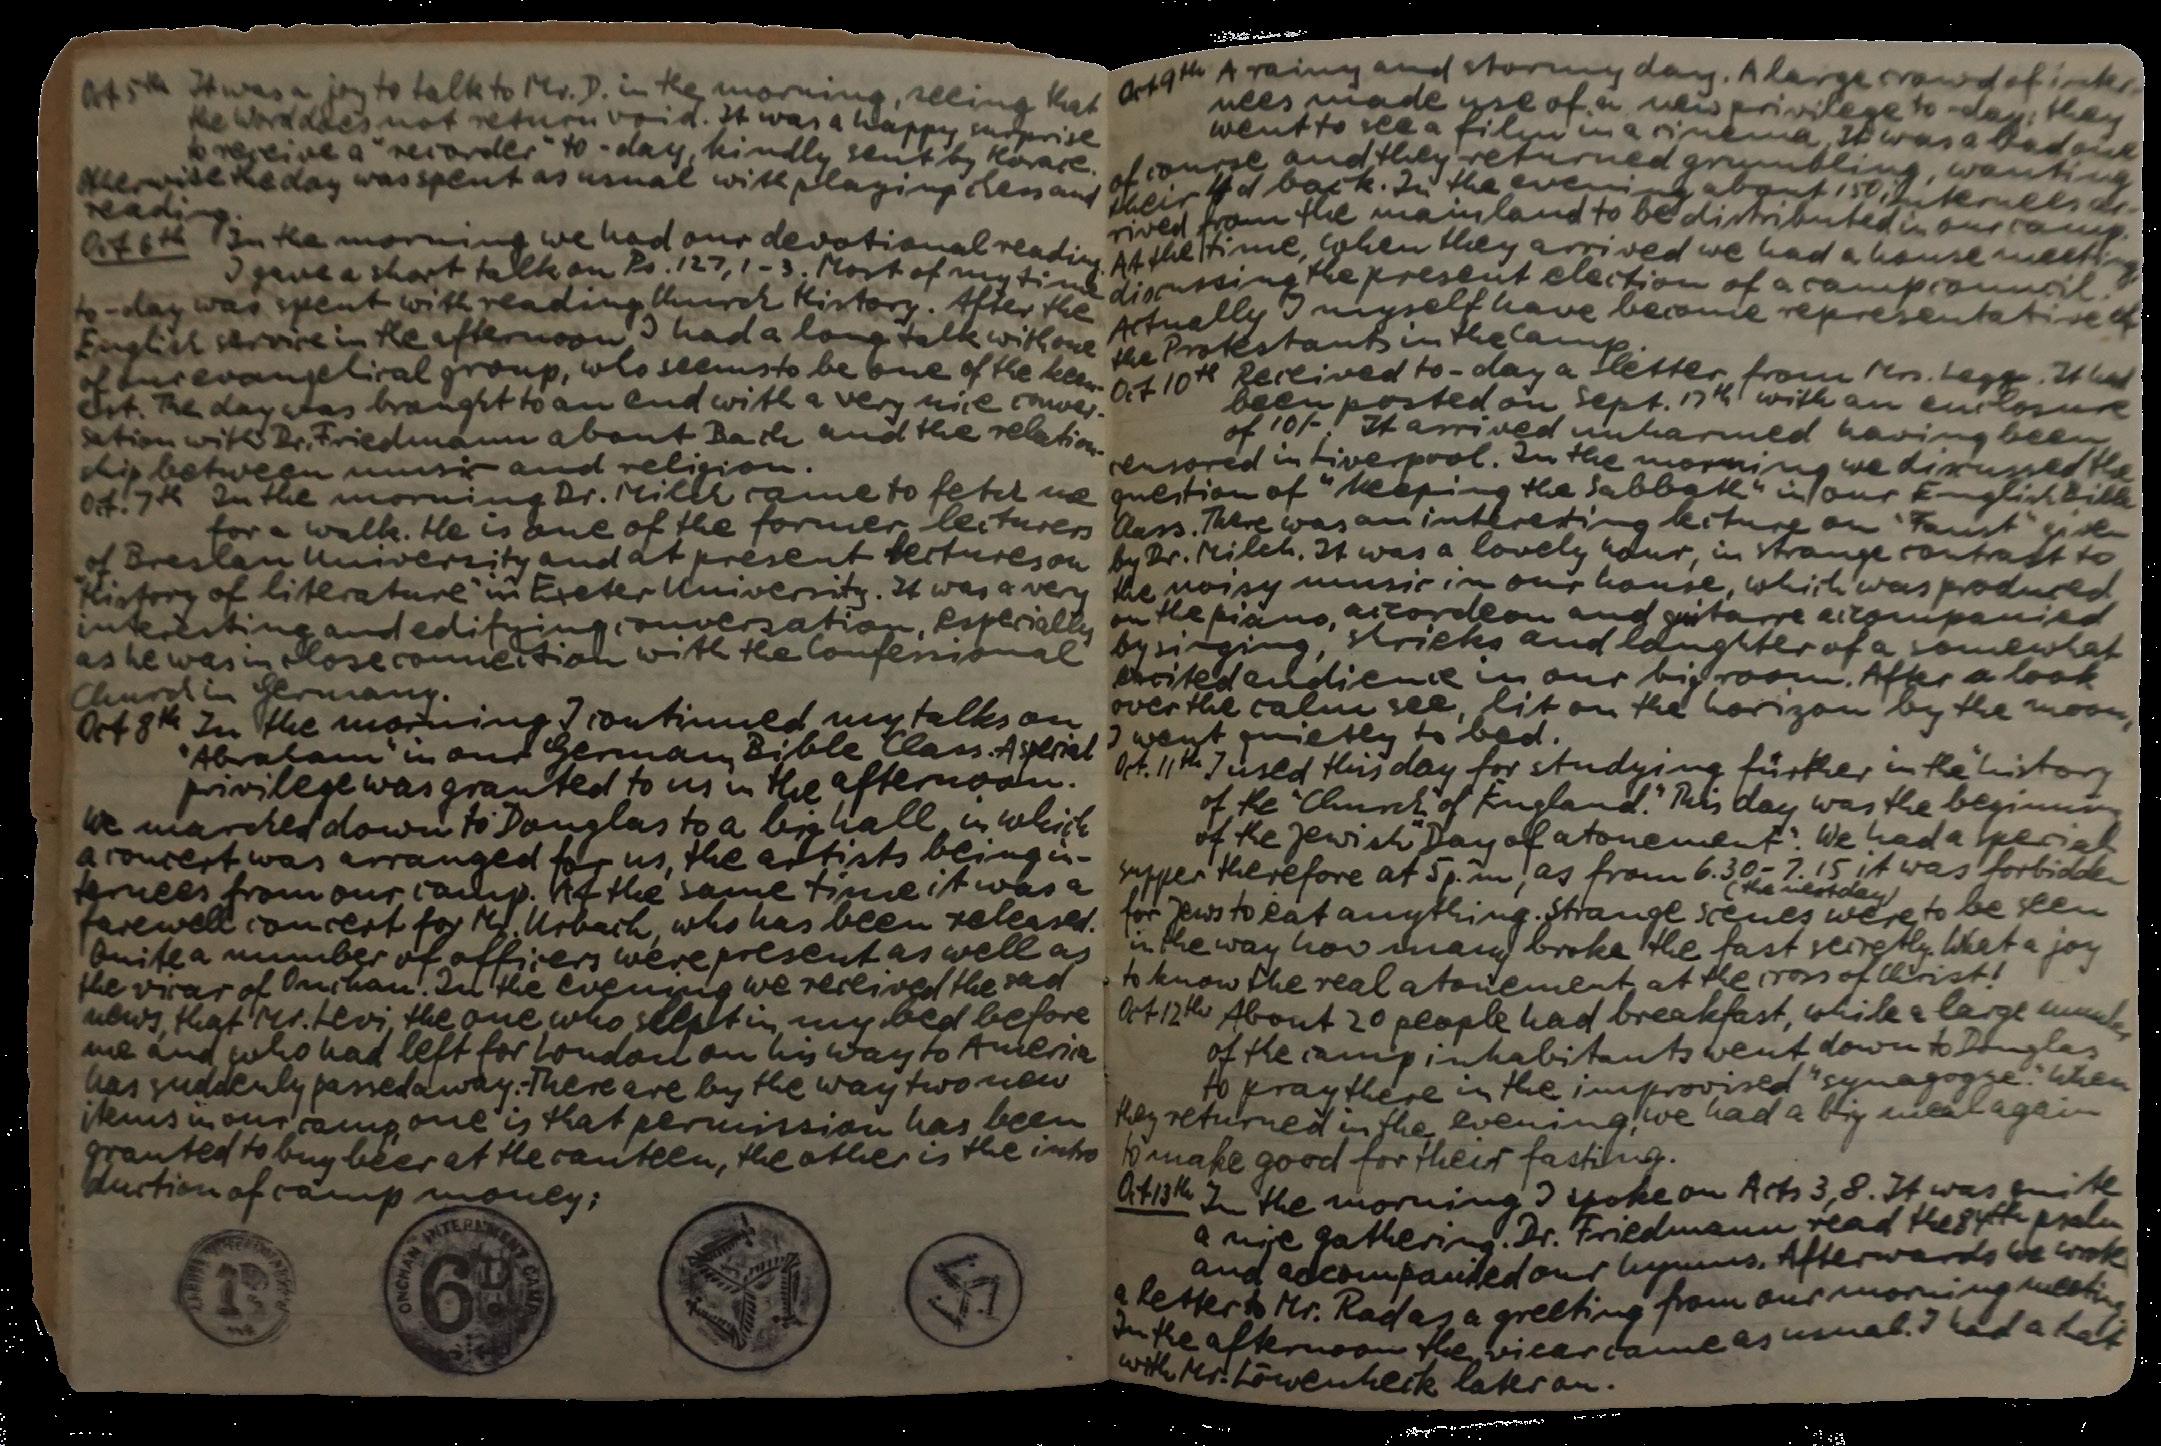 Oct 5th It was a joy to talk to Mr. D. in the morning, seeing that
the Word does not return void. It was a happy surprise
to receive a "recorder" to-day, kindly sent by Horace.
Otherwise the day was spent as usual with playing chess and
reading.
Oct 6th In the morning we had our devotional reading.
I gave a short talk on Ps. 127, 1-3. Most of my time
to-day was spent with reading Church History. After the
English service in the afternoon I had a long talk with one
of our evangelical group, who seems to be one of the keen-
est. The day was brought to an end with a very nice conver-
sation with Dr. Friedmann about Bach and the relation-
ship between music and religion.
Oct. 7th In the morning Dr. Milch came to fetch me
for a walk. He is one of the former lecturers
of Breslau University and at present lectures on
"History of literature" in Exeter University. It was a very
interesting and edifying conversation, especially
as he was in close connection with the Confessional
Church in Germany.
Oct 8th In the morning I continued my talks on
"Abraham" in our German Bible Class. A special
privilege was granted to us in the afternoon.
We marched down to Douglas to a big hall, in which
a concert was arranged for us, the artists being in-
ternees from our camp. At the same time it was a
farewell concert for Mr. Urbach, who has been released.
Quite a number of officers were present as well as
the vicar of Onchan. In the evening we received the sad
news, that Mr. Levi, the one who slept in my bed before
me and who had left for London on his way to America
has suddenly passed away. - There are by the way two new
items in our camp, one is that permission has been
granted to buy beer at the canteen, the other is the intro
duction of camp money;
1D
ONCHAN INTERNMENT CAMP
6D
Oct 9th A rainy and stormy day. A large crowd of inter-
nees made use of a new privilege to-day; they
went to see a film in a cinema. It was a bad one
of course and they returned grumbling, wanting
their 4d back. In the evening about 150 internees ar-
rived from the mainland to be distributed in our camp.
At the time, when they arrived we had a house meeting
discussing the present election of a camp council.
Actually I myself have become representative of
the Protestants in the camp.
Oct 10th Received to-day a letter from Mrs. Legg. It had
been posted on Sept. 17th with an enclosure
of 10/-! It arrived unharmed having been
censored in Liverpool. In the morning we discussed the
question of "keeping the Sabbath" in our English Bible
Class. There was an interesting lecture on "Faust" given
by Dr. Milch. It was a lovely hour, in strange contrast to
the noisy music in our house, which was produced
on the piano, accordeon and guitarre accompanied
by singing, shrieks and laughter of a somewhat
excited audience in our big room. After a look
over the calm see, lit on the horizon by the moon,
I went quietly to bed.
Oct. 11th I used this day for studying further in the "history
of the "Church of England." This day was the beginning
of the Jewish "Day of atonement". We had a special
supper therefore at 5 p.m, as from 6.30 - 7.15 it was forbidden
(the next day)
for Jews to eat anything. Strange scenes were to be seen
in the way how many broke the fast secretly. What a joy
to know the real atonement at the cross of Christ!
Oct 12th About 20 people had breakfast, while a large number
of the camp inhabitants went down to Douglas
to pray there in the improvised "synagogue." When
they returned in the evening, we had a big meal again
to make good for their fasting.
Oct 13th In the morning I spoke on Acts 3, 8. It was quite
a nice gathering. Dr. Friedmann read the 84th psalm
and accompanied our hymns. Afterwards we wrote
a letter to Mr. Rad as a greeting from our morning meeting
In the afternoon the vicar came as usual. I had a
with Mr. Löwenheck later on.